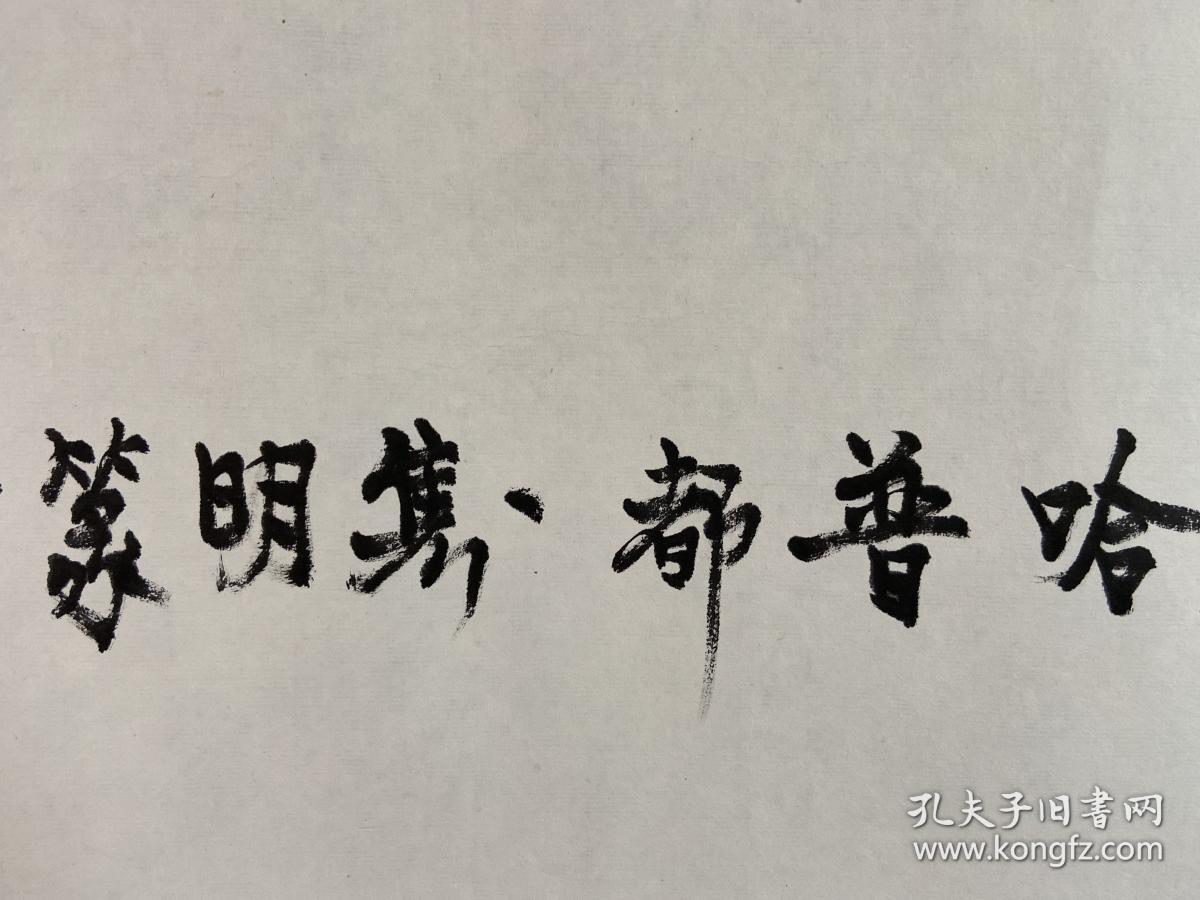 哈普都·隽明篆
孔夫子旧書网
www.kongfz.com